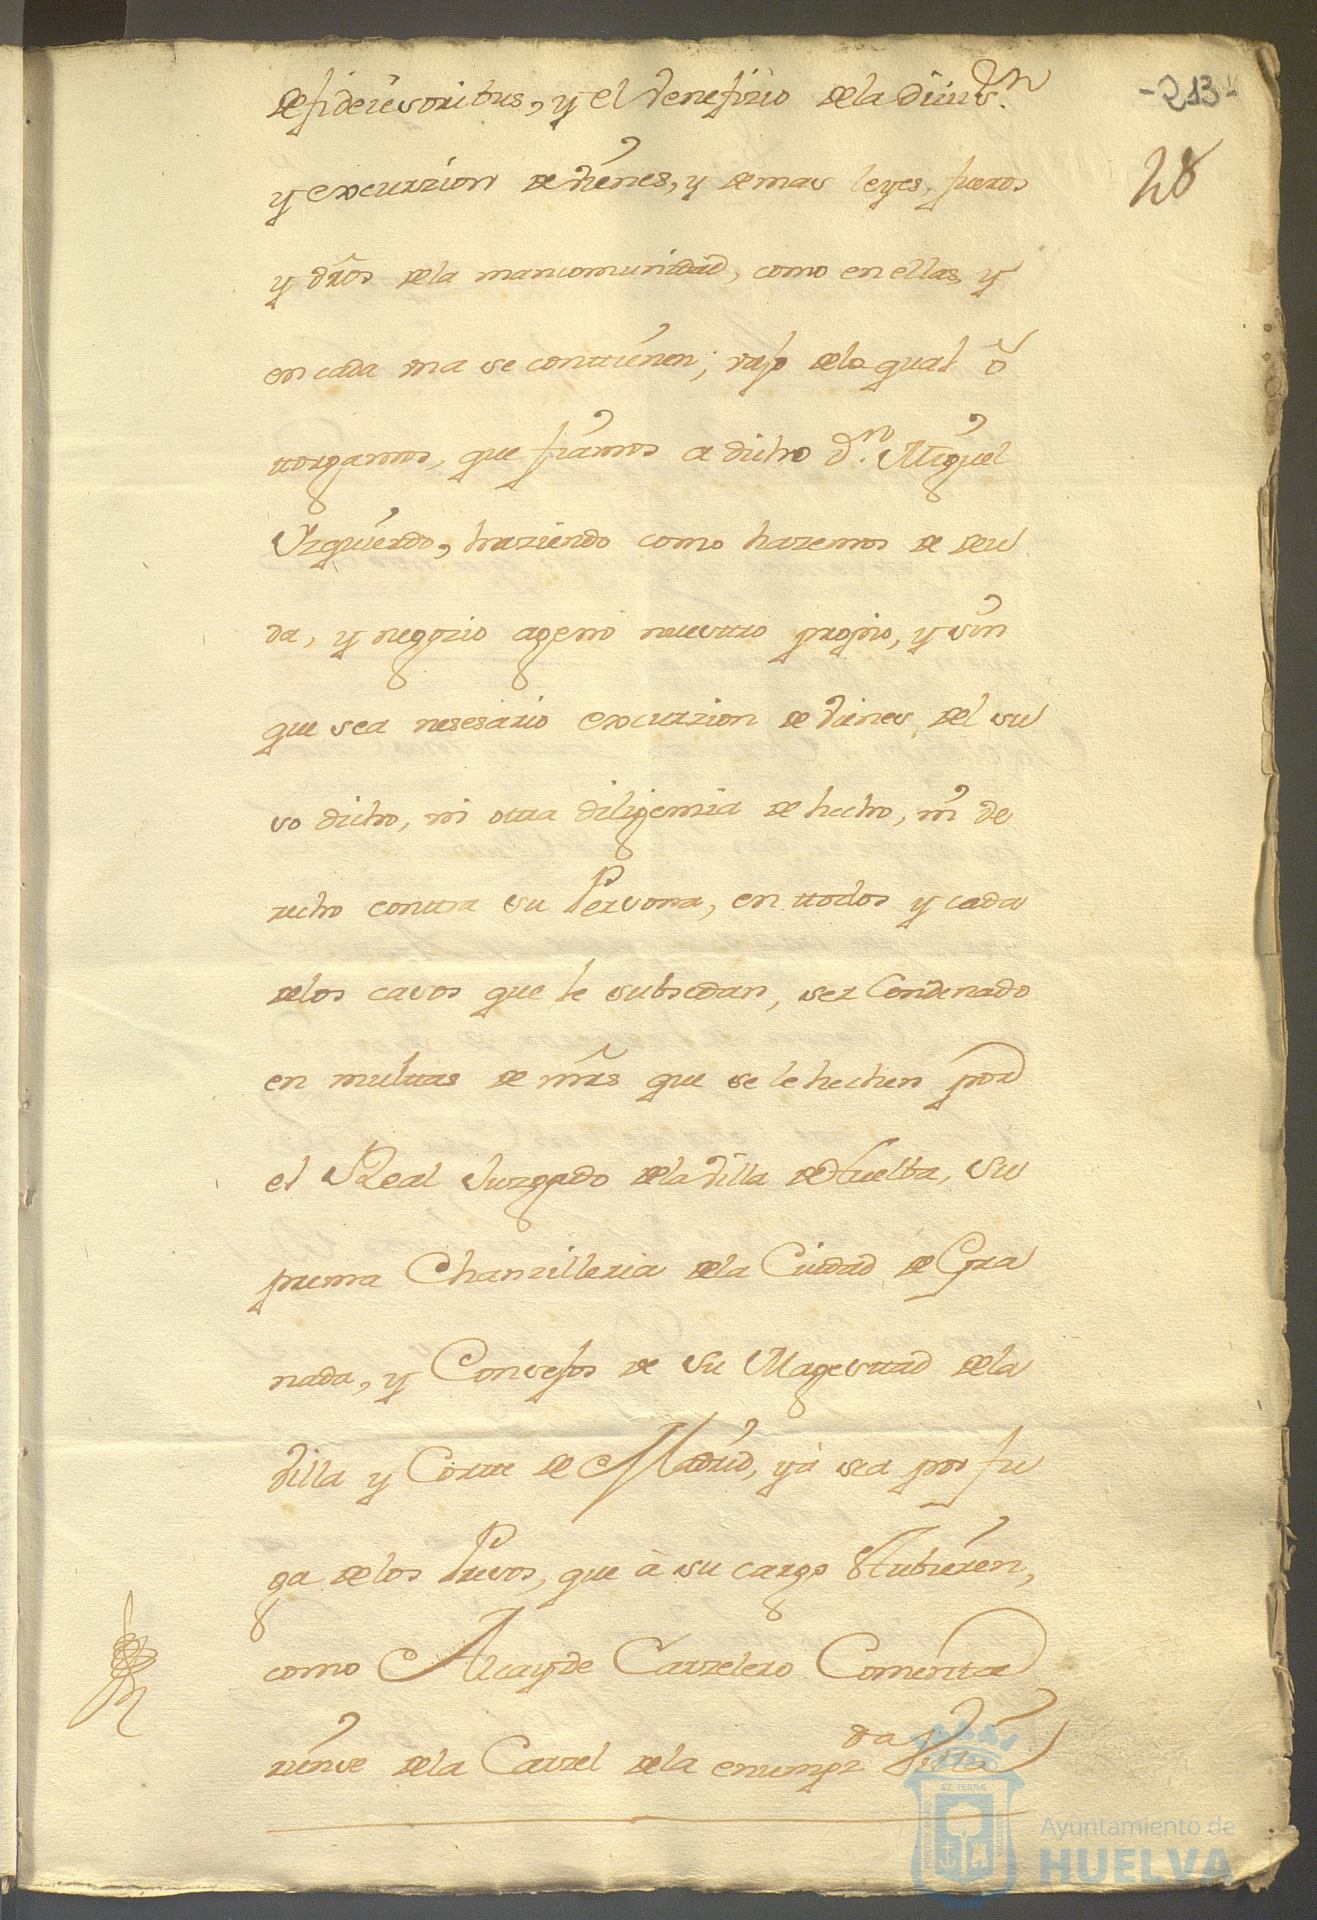 -213-
28
de fideiusoribus, y el venefizio de la Divis.on
y excurzion de vienes, y demas leyes, fueros
y dros de la mancomunidad, como en ellas, y
en cada una se conttienen; vajo de lo qual o
ttorgamos, que fiamos a dicho D.n Miguel
Yzquierdo, haziendo como hazemos de deu
da, y negozio ageno nuesttro propio, y sin
que sea nesesario excurzion de vienes del su
so dicho, ni ottra diligenzia de hecho, ni de
recho conttra su Persona, en ttodos y cada
de los casos que le subsedan, ser Condenado
en multtas de mrs que se le hechen por
el Real Juzgado de la Villa de Huelba, Su
prema Chanzilleria de la Ciudad de Gra
nada, y Consejos de Su Magesttad de la
Villa y Cortte de Madrid, ya sea por fu
ga de los Presos, que à su cargo Hubieren,
como Alcayde Carzelero Comenta
riense de la Carzel de la enunpz.da Villa
Ayuntamiento de
HUELVA